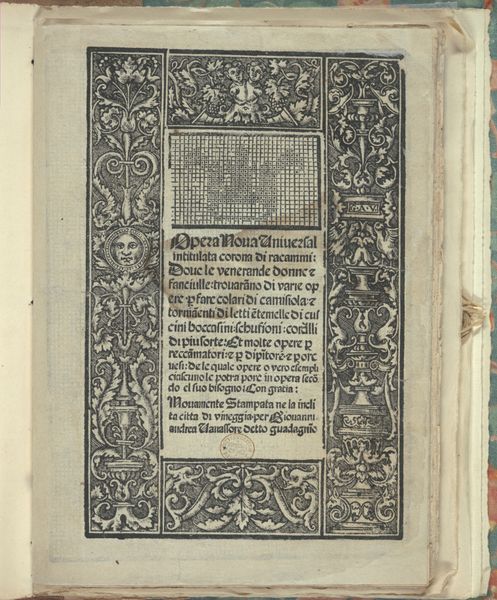 Opera Noua Uniuersal
intitulata corona di racammi:
Doue le venerande donne ⁊
fanciulle: trouarāno di varie op
ere p̱ fare colari di camisiola: ⁊
torniamēti di letti ētemelle di cus
cini boccasini: schufioni: cordlli
di piu sorte: Et molte opere p̱
reccāmatori: ⁊ p̱ dipītorē: ⁊ p̱ orc
uesi: de le quale opere o vero esempli
ciascuno le potra pore in opera secō
do el suo bisogno: Con gratia:
Nouamente Stampata ne la incli
ta citta di vineggia per Giouanni
andrea Vauassore detto guadagnīo
G. A. V.